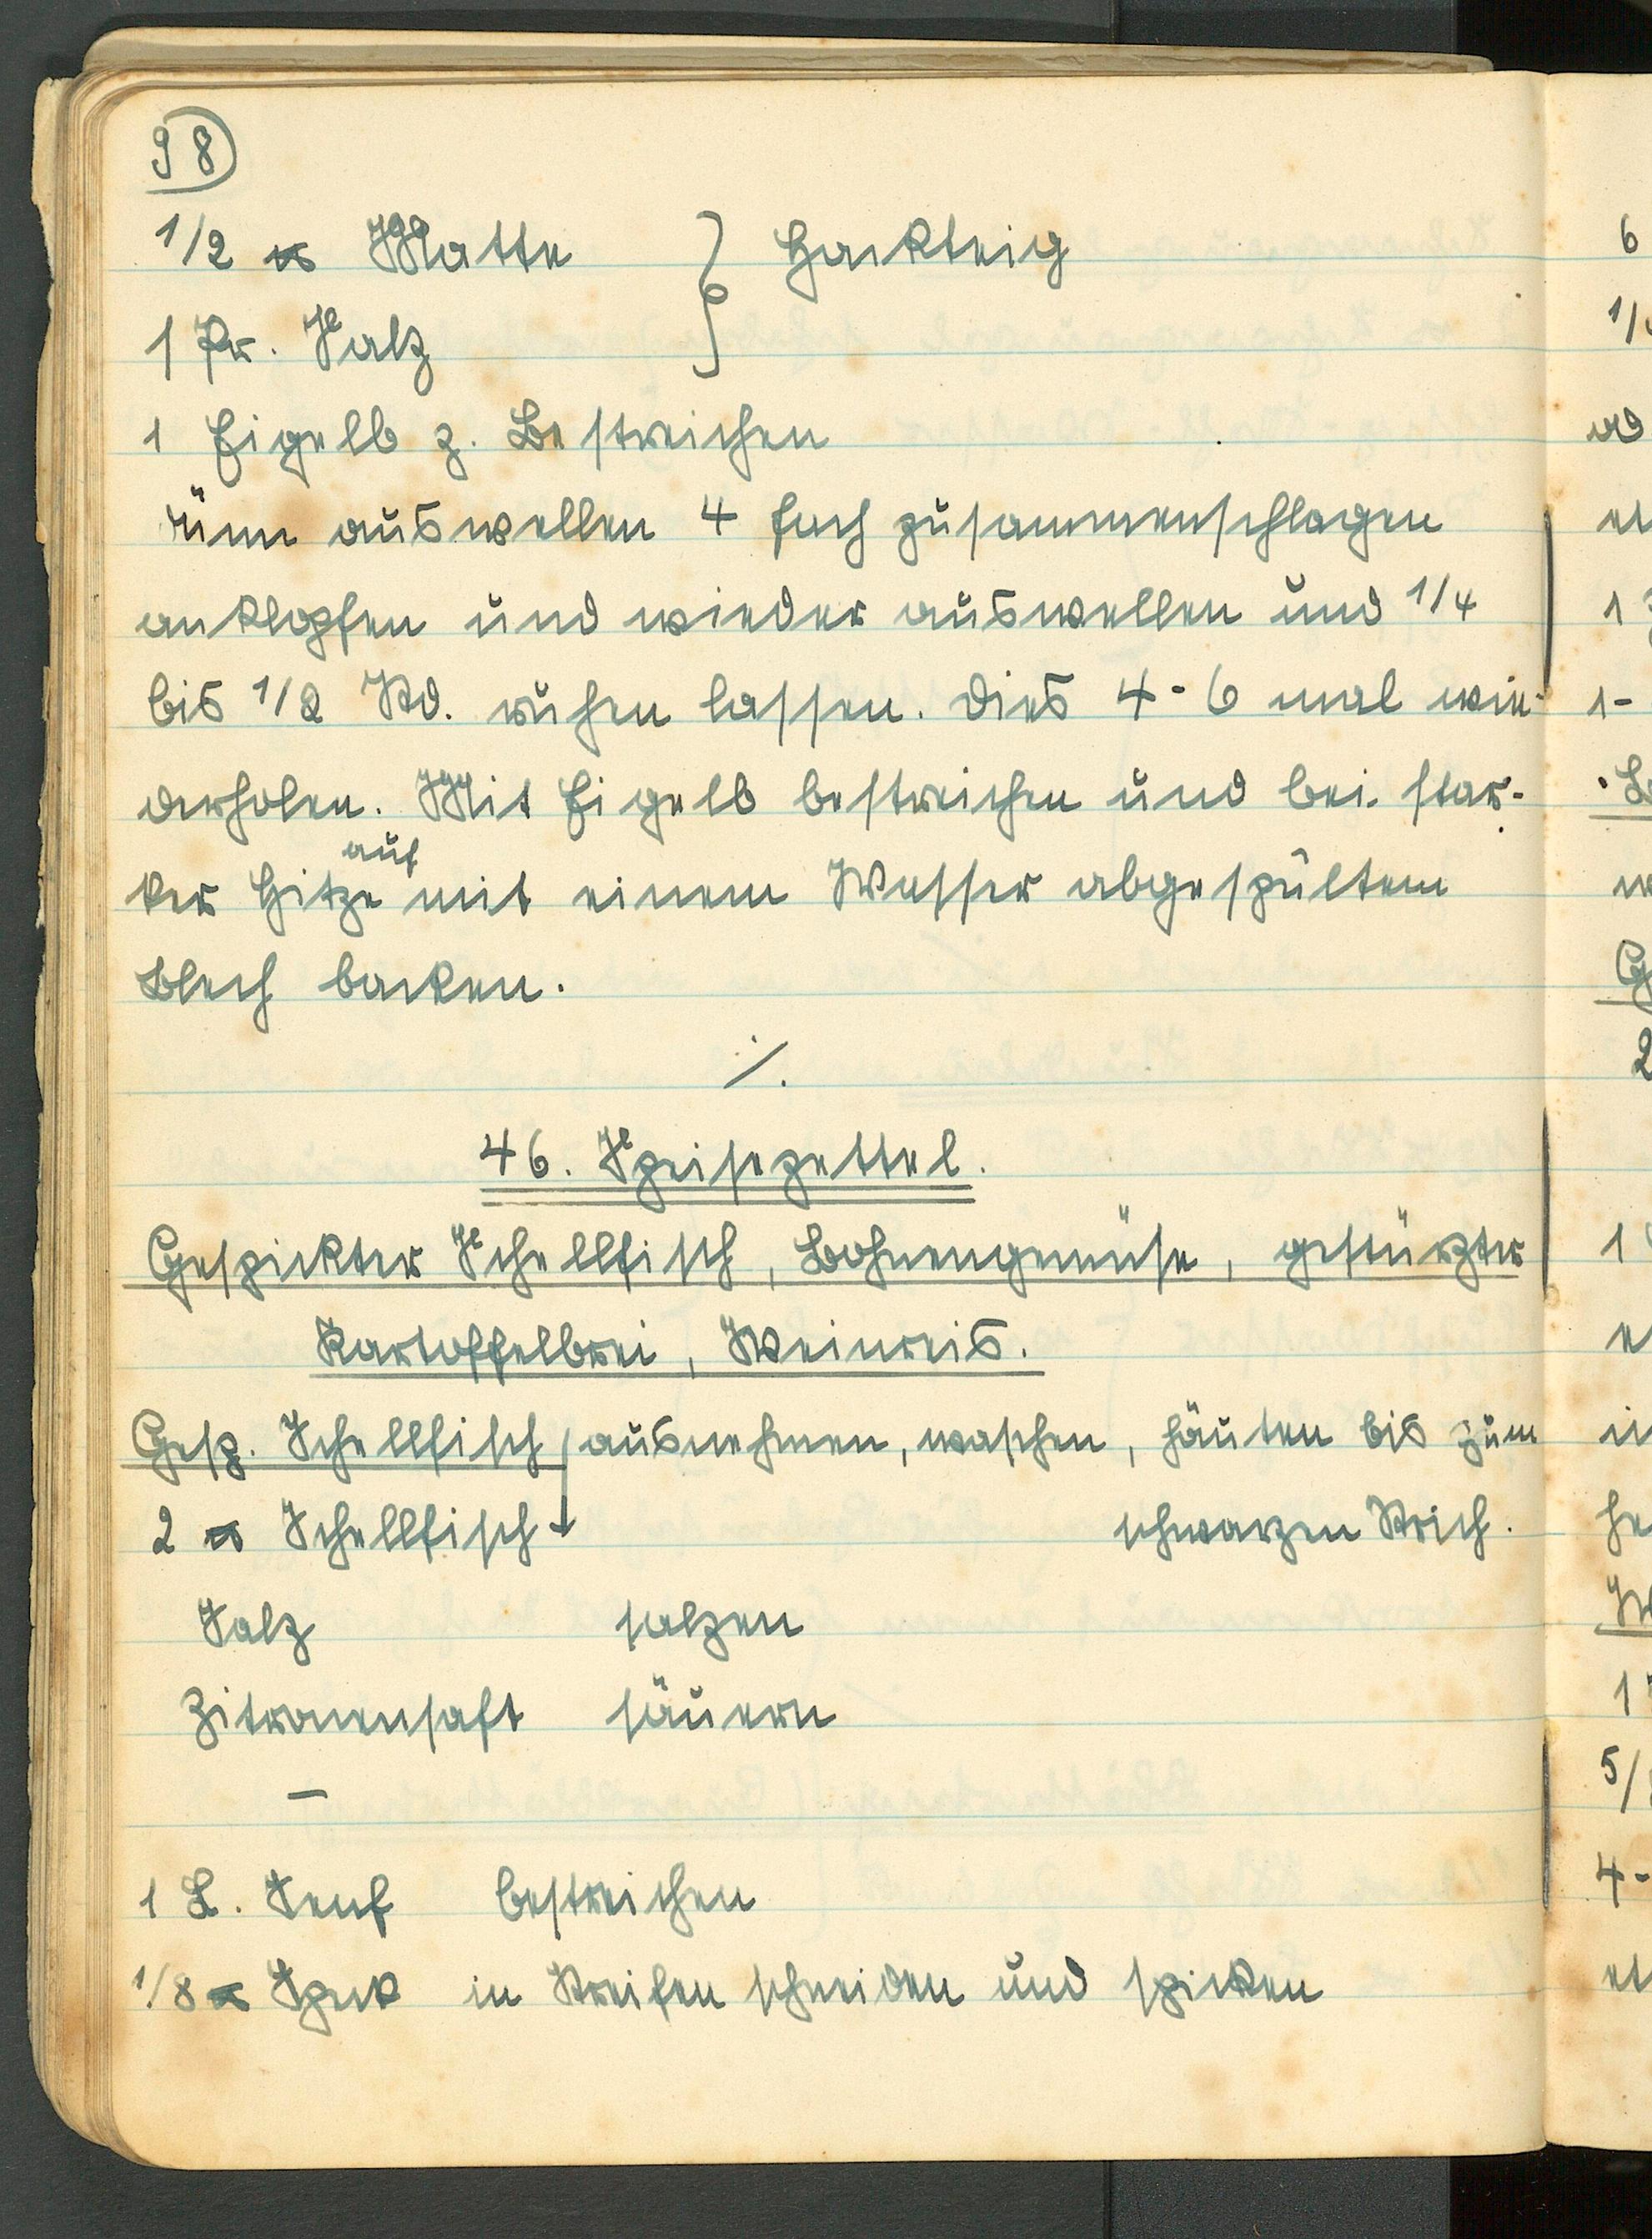 98
1/2 ℔ Matte } Hackteig
1 Pr. Salz
1 Eigelb z. Bestreichen
dünn auswellen 4 fach zusammenschlagen
anklopfen und wieder auswellen und 1/4
bis 1/2 Std. ruhen lassen. Dies 4-6 mal wie-
derholen. Mit Eigelb bestreichen und bei star-
ker Hitze auf mit einem Wasser abgespültem
Blech backen.
./.
46. Speisezettel.
Gespickter Schellfisch, Bohnengemüse, gestürzter
Kartoffelbrei, Weinreis.
Gesp. Schellfisch ausnehmen, waschen, häuten bis zum
2 ℔ Schellfisch schwarzen Strich.
Salz salzen
Zitronensaft säuern
–
1 L. Senf bestreichen
1/8 ℔ Speck in Streifen schneiden und spicken